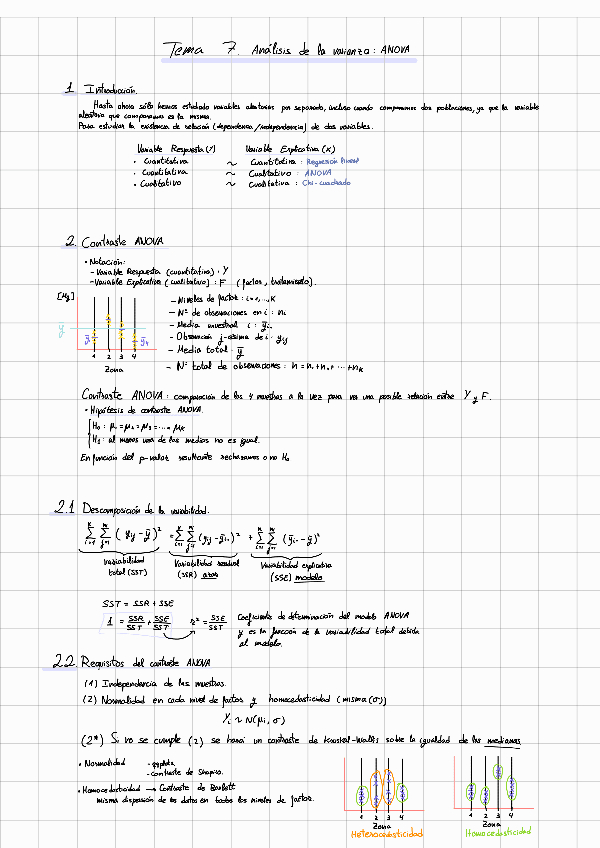 Tema 7. Análisis de la varianza: ANOVA
1 Introducción.
Hasta ahora sólo hemos estudiado variables aleatorias por separado, incluso cuando comparamos dos poblaciones, ya que la variable
aleatoria que comparamos es la misma.
Para estudiar la existencia de relación (dependencia/independencia) de dos variables.
Variable Respuesta (Y) Variable Explicativa (X)
• Cuantitativa ~ Cuantitativa : Regresión lineal
• Cuantitativa ~ Cualitativo : ANOVA
• Cualitativo ~ Cualitativa : Chi-cuadrado
2. Contraste ANOVA
• Notación:
- Variable Respuesta (cuantitativa) : Y
- Variable Explicativa (cualitativa) : F (factor, tratamiento).
[Hg]
1 2 3 4
Zona
- Niveles de factor : i = 1, ..., K
- Nº de observaciones en i : ni
- Media muestral i : ȳi.
- Observación j-ésima de i : yij
- Media total : ȳ
- Nº total de observaciones : n = n1 + n2 + ... + nk
Contraste ANOVA : comparación de las 4 muestras a la vez para ver una posible relación entre Y y F.
• Hipótesis de contraste ANOVA.
H0 : μ1 = μ2 = μ3 = ... = μK
H1 : al menos una de las medias no es igual.
En función del p-valor resultante rechazamos o no H0
2.1 Descomposición de la variabilidad.
∑∑ (yij - ȳ)² = ∑∑ (yij - ȳi.)² + ∑∑ (ȳi. - ȳ)²
Variabilidad total (SST) Variabilidad residual (SSR) azar Variabilidad explicativa (SSE) modelo
SST = SSR + SSE
1 = SSR/SST + SSE/SST r² = SSE/SST Coeficiente de determinación del modelo ANOVA
y es la fracción de la variabilidad total debida
al modelo.
2.2. Requisitos del contraste ANOVA
(1) Independencia de las muestras.
(2) Normalidad en cada nivel de factor y homocedasticidad (misma (σ))
Yi ~ N(μi, σ)
(2*) Si no se cumple (2) se hará un contraste de Kruskal-Wallis sobre la igualdad de las medianas
• Normalidad - qqplots
- contraste de Shapiro.
• Homocedasticidad → Contraste de Bartlett
misma dispersión de los datos en todos los niveles de factor.
1 2 3 4
Zona
Heterocedasticidad
1 2 3 4
Zona
Homocedasticidad